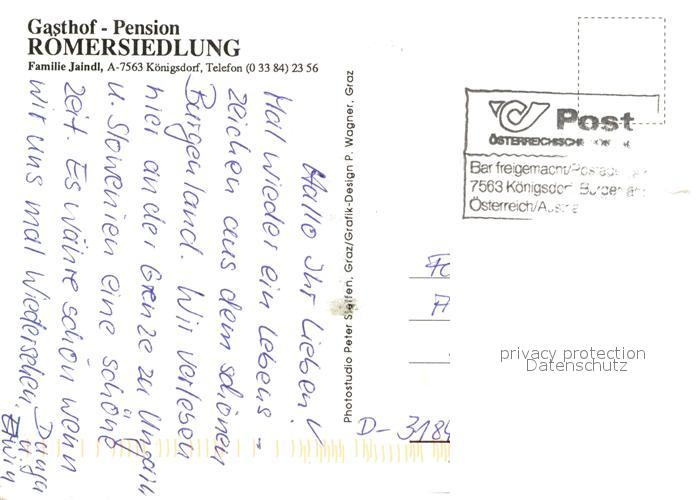 Gasthof - Pension
RÖMERSIEDLUNG
Familie Jaindl, A-7563 Königsdorf, Telefon (0 33 84) 23 56
Hallo Ihr Lieben!
Mal wieder ein Lebens-
zeichen aus dem schönen
Burgenland. Wir verleben
hier an der Grenze zu Ungarn
u. Slowenien eine schöne
Zeit. Es währe schön wenn
wir uns mal Wiedersehen.
Photostudio Peter Steffen, Graz/Grafik-Design P. Wagner, Graz
Post
ÖSTERREICHISCHE
Bar freigemacht/Postage
7563 Königsdorf
Österreich/Austria
D- 3184
privacy protection
Datenschutz